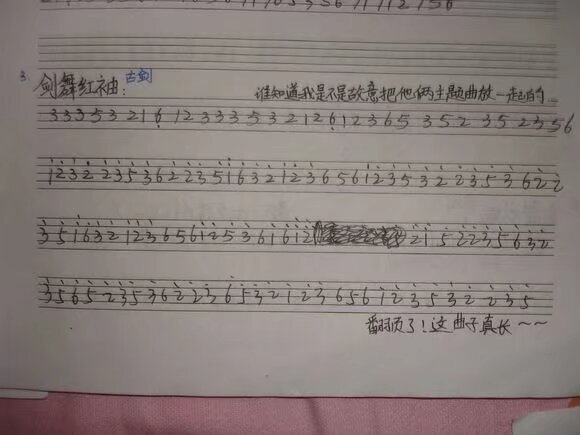 3. 剑舞红袖: 古剑
谁知道我是不是故意把他俩主题曲放一起的...
3 3 3 5 3 2 1 6 1 2 3 3 3 5 3 2 1 2 6 1 2 3 6 5 3 5 2 3 5 2 3 5 6
1 2 3 2 2 3 5 3 6 2 2 3 5 1 6 3 2 1 2 3 6 5 6 1 2 3 5 3 2 2 3 5 3 6 2 2
3 5 1 6 3 2 1 2 3 6 5 6 1 2 5 3 6 1 6 1 2 2 1 5 2 2 3 5 6 3 2
3 5 6 5 2 3 5 3 6 2 2 3 6 5 3 2 1 2 3 6 5 6 1 2 3 5 3 2 2 3 5
翻页了!这曲子真长~~